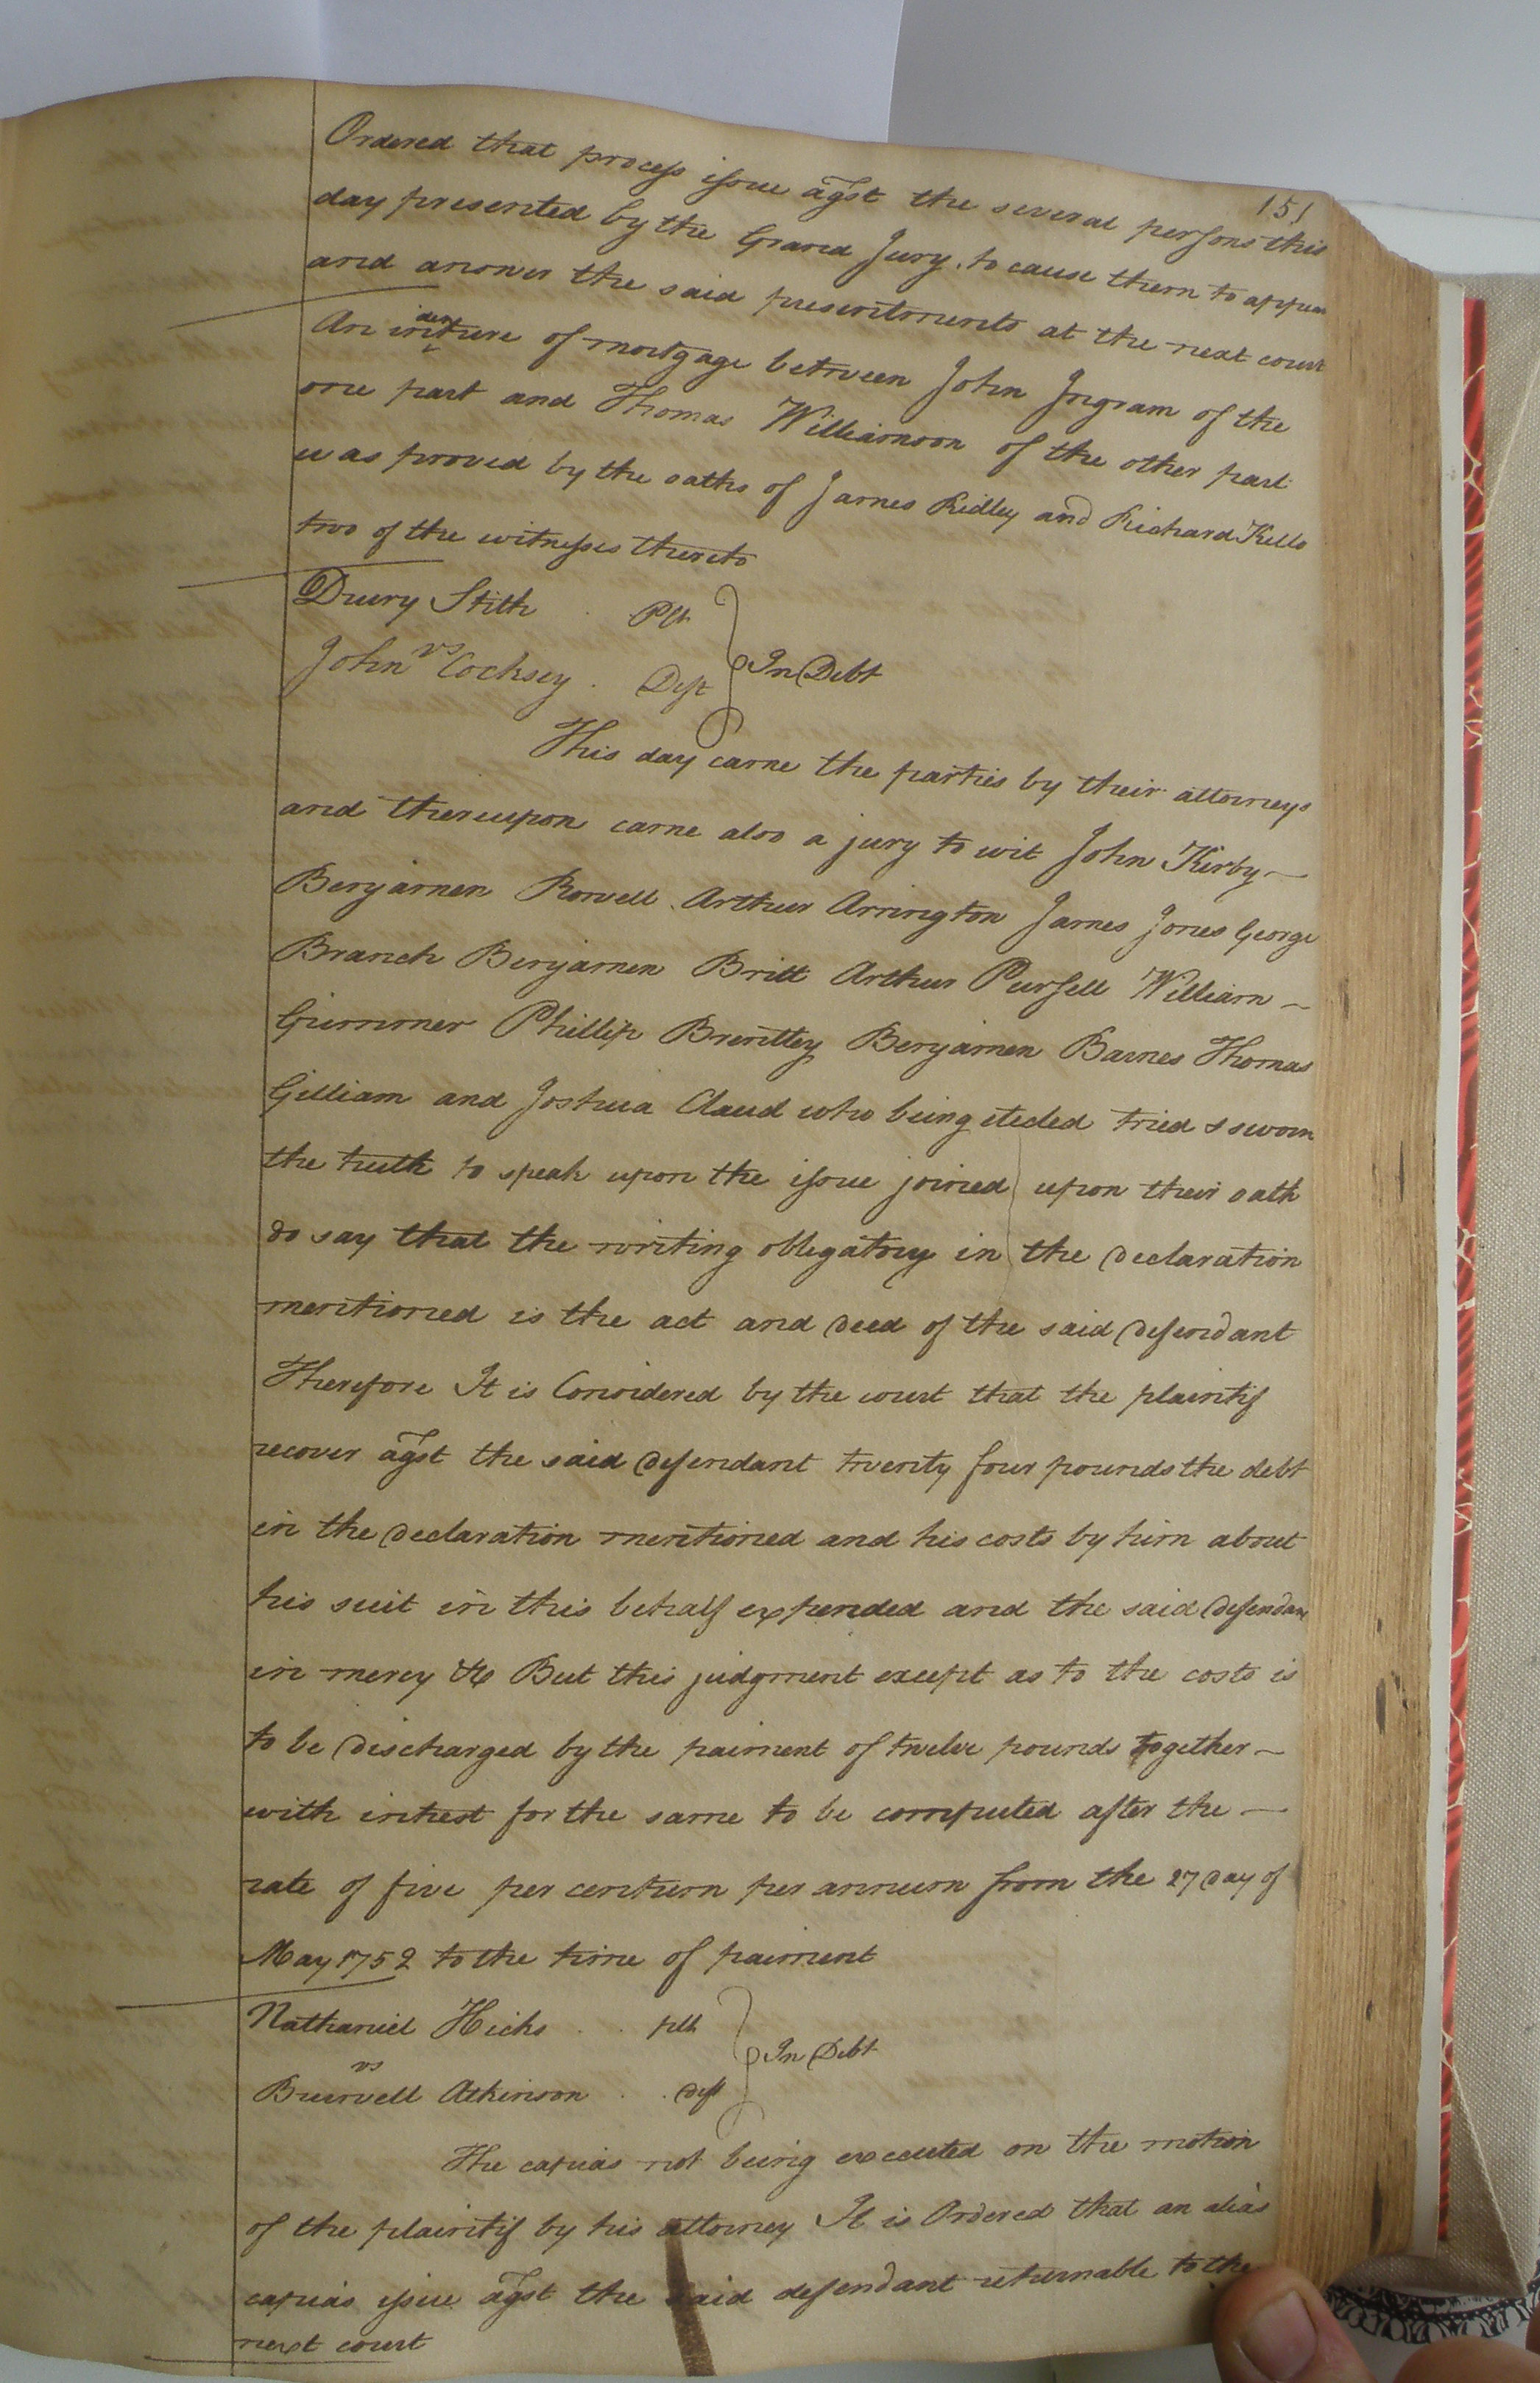 151
Ordered that process issue agst the several persons this
day presented by the Grand Jury. to cause them to appear
and answer the said presentments at the next court
An indenture of mortgage between John Ingram of the
one part and Thomas Williamson of the other part
was proved by the oaths of James Ridley and Richard Kello
two of the witnesses thereto
Drury Stith . Plt
vs
John Cocksey . Deft
In Debt
This day came the parties by their attorneys
and thereupon came also a jury to wit John Kirby —
Benjamen Rowell Arthur Arrington James Jones George
Branch Benjamen Britt Arthur Pursell William —
Grimmer Phillip Brentley Benjamen Barnes Thomas
Gilliam and Joshua Claud who being elected tried & sworn
the truth to speak upon the issue joined upon their oath
do say that the writing obligatory in the declaration
mentioned is the act and deed of the said defendant
Therefore It is Considered by the court that the plaintif
recover agst the said defendant twenty four pounds the debt
in the declaration mentioned and his costs by him about
his suit in this behalf expended and the said defendant
in mercy &c But this judgment except as to the costs is
to be discharged by the paiment of twelve pounds together —
with intrest for the same to be computed after the —
rate of five per centum per annum from the 27 day of
May 1752 to the time of paiment
Nathaniel Hicks . . plt
vs
Burwell Atkinson . . deft
In Debt
The capias not being executed on the motion
of the plaintif by his attorney It is Ordered that an alias
capias issue agst the said defendant returnable to the
next court